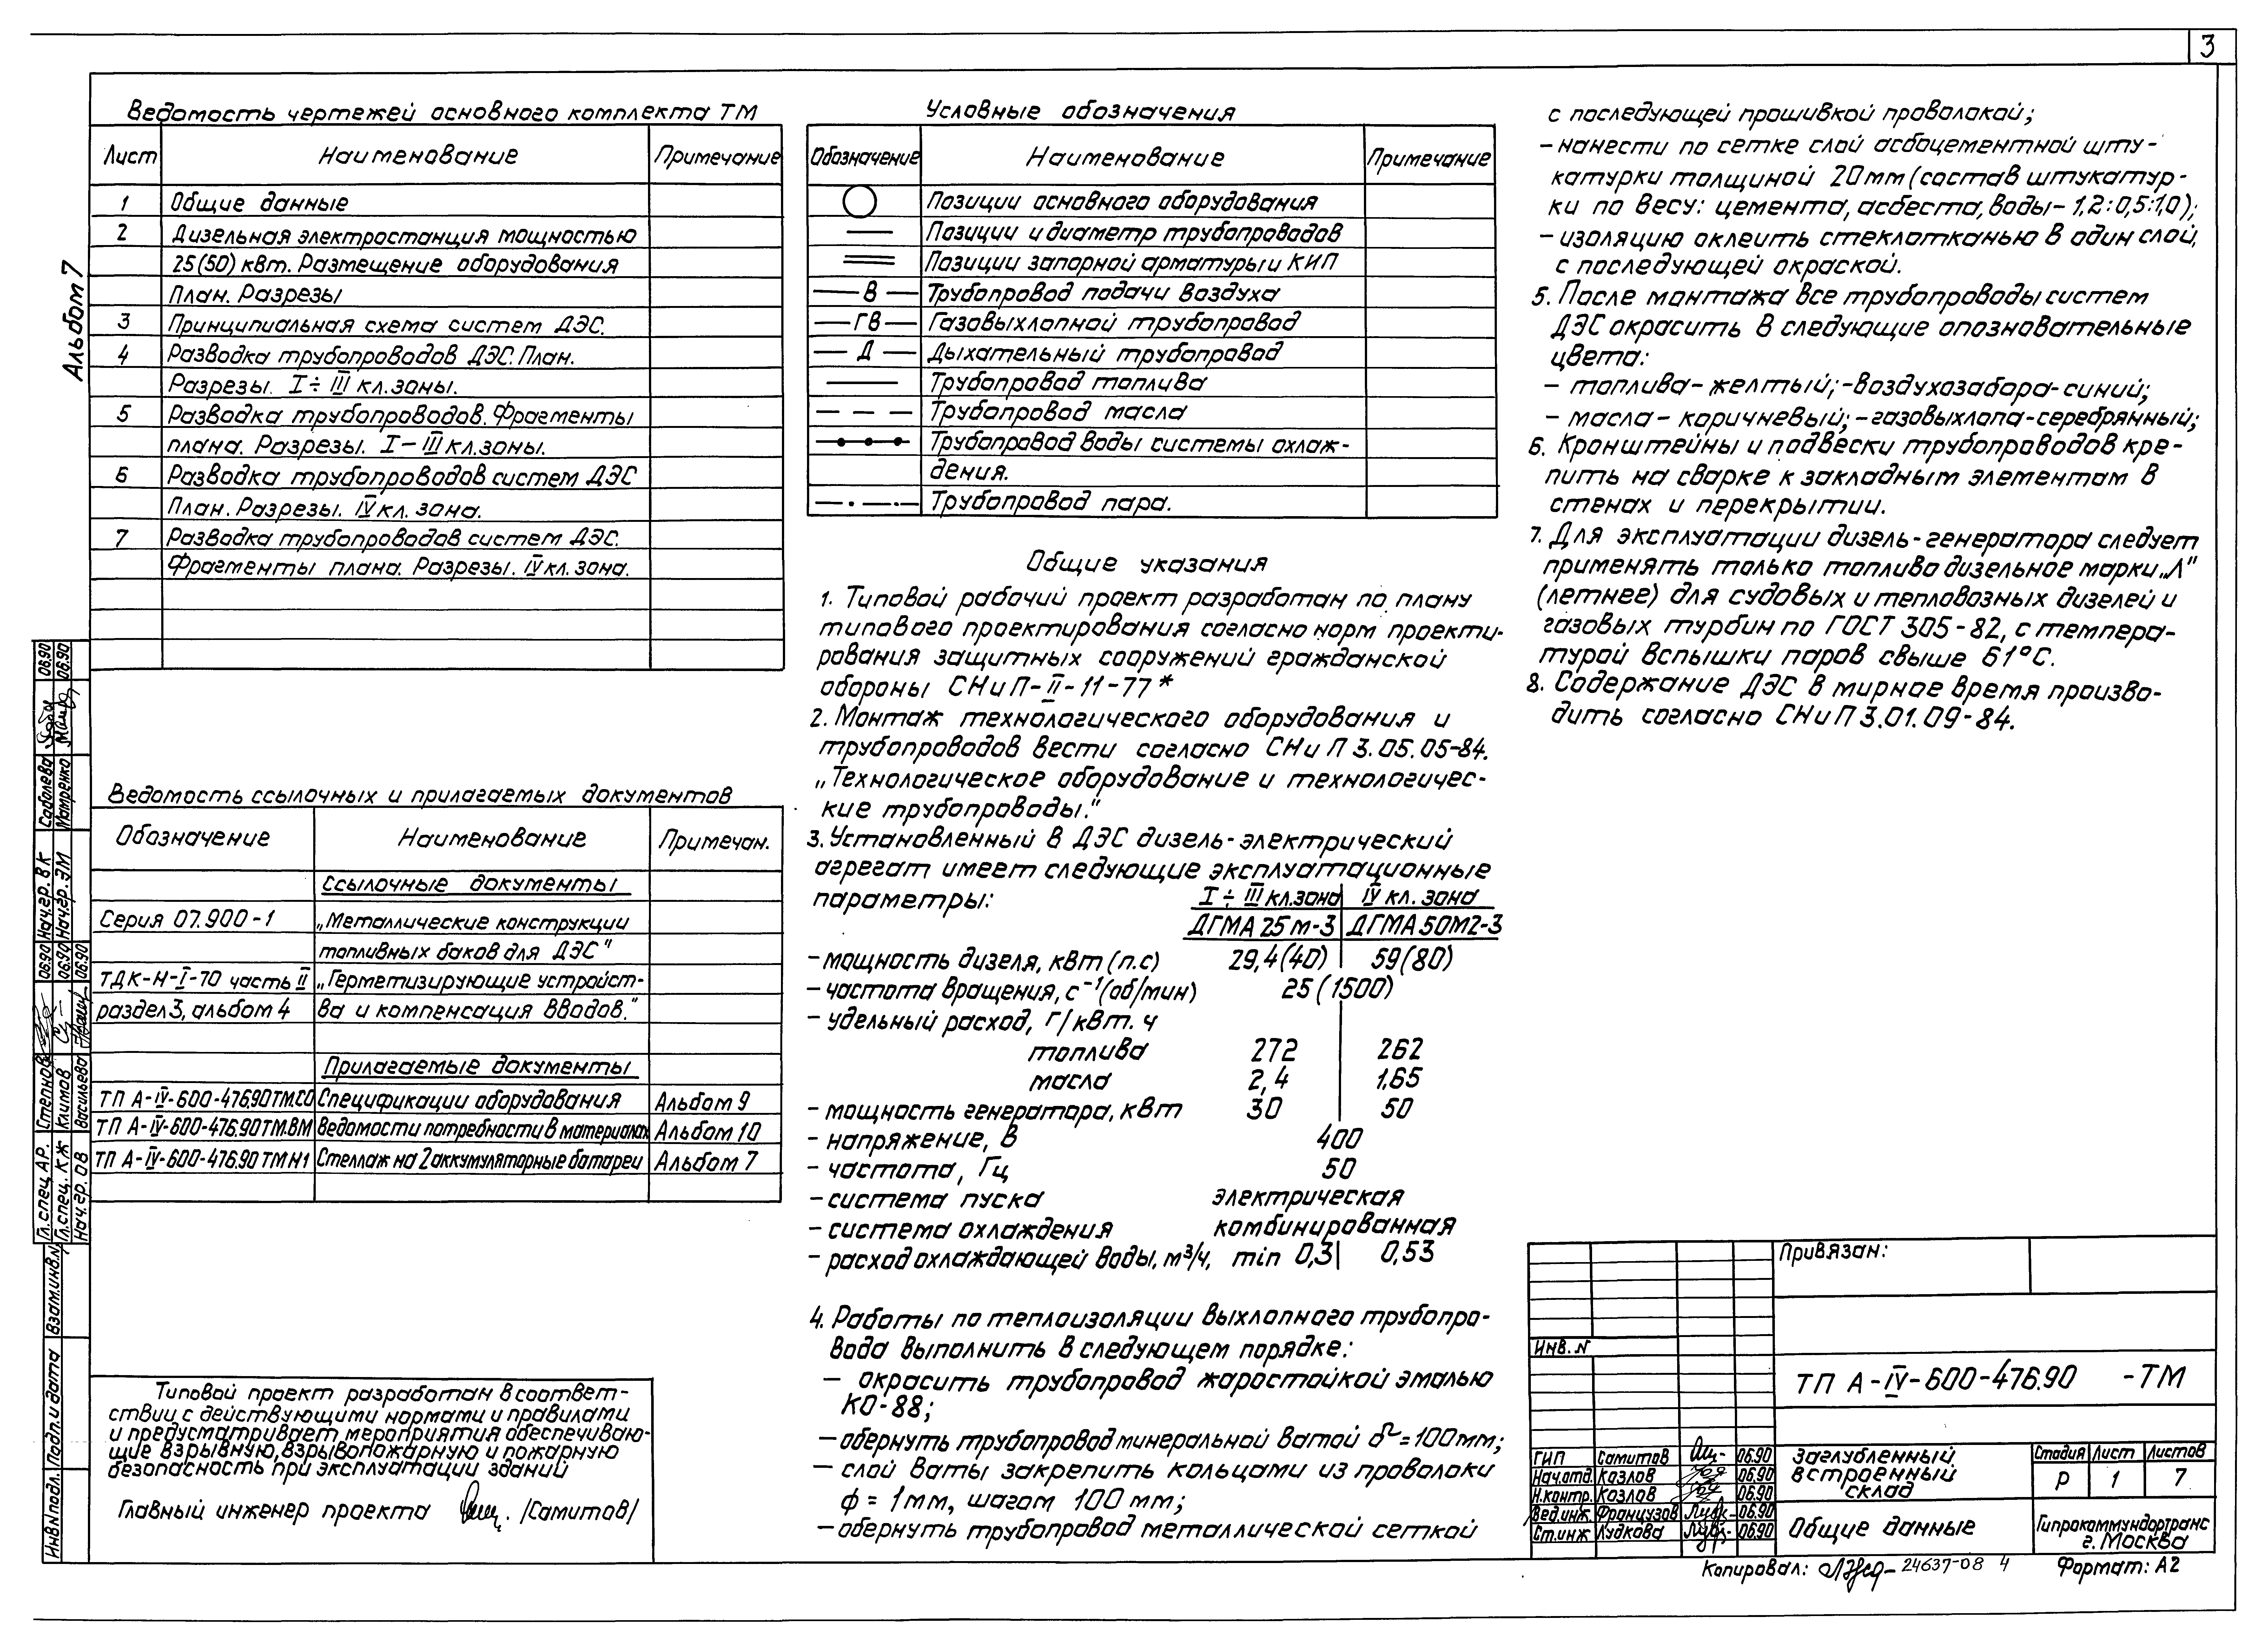 3
Альбом 7
Ведомость чертежей основного комплекта ТМ
Лист Наименование Примечание
1 Общие данные
2 Дизельная электростанция мощностью
25(50) квт. Размещение оборудования
План. Разрезы
3 Принципиальная схема систем ДЭС.
4 Разводка трубопроводов ДЭС. План.
Разрезы. I÷III кл. зоны.
5 Разводка трубопроводов. Фрагменты
плана. Разрезы. I–III кл. зоны.
6 Разводка трубопроводов систем ДЭС
План. Разрезы. IV кл. зона.
7 Разводка трубопроводов систем ДЭС.
Фрагменты плана. Разрезы. IV кл. зона.
Ведомость ссылочных и прилагаемых документов
Обозначение Наименование Примечан.
Ссылочные документы
Серия 07.900-1 „Металлические конструкции
топливных баков для ДЭС"
ТДК-Н-I-70 часть II „Герметизирующие устройст-
раздел 3, альбом 4 ва и компенсация вводов."
Прилагаемые документы
ТП А-IV-600-476.90 ТМ.СО Спецификации оборудования Альбом 9
ТП А-IV-600-476.90 ТМ.ВМ Ведомости потребности в материалах Альбом 10
ТП А-IV-600-476.90 ТМН1 Стеллаж на 2 аккумуляторные батареи Альбом 7
Типовой проект разработан в соответ-
ствии с действующими нормами и правилами
и предусматривает мероприятия обеспечиваю-
щие взрывную, взрывопожарную и пожарную
безопасность при эксплуатации зданий
Главный инженер проекта /Самитов/
Условные обозначения
Обозначение Наименование Примечание
Позиции основного оборудования
Позиции и диаметр трубопроводов
Позиции запорной арматуры и КИП
В Трубопровод подачи воздуха
ГВ Газовыхлопной трубопровод
Д Дыхательный трубопровод
Трубопровод топлива
Трубопровод масла
Трубопровод воды системы охлаж-
дения.
Трубопровод пара.
Общие указания
1. Типовой рабочий проект разработан по плану
типового проектирования согласно норм проекти-
рования защитных сооружений гражданской
обороны СНиП-II-11-77*
2. Монтаж технологического оборудования и
трубопроводов вести согласно СНиП 3.05.05-84.
„Технологическое оборудование и технологичес-
кие трубопроводы."
3. Установленный в ДЭС дизель-электрический
агрегат имеет следующие эксплуатационные
параметры: I÷III кл. зона IV кл. зона
ДГМА 25 м-3 ДГМА 50М2-3
- мощность дизеля, квт (л.с) 29,4(40) 59(80)
- частота вращения, с⁻¹(об/мин) 25(1500)
- удельный расход, г/квт.ч
топлива 272 262
масла 2,4 1,65
- мощность генератора, квт 30 50
- напряжение, В 400
- частота, Гц 50
- система пуска электрическая
- система охлаждения комбинированная
- расход охлаждающей воды, м³/ч, min 0,3 0,53
4. Работы по теплоизоляции выхлопного трубопро-
вода выполнить в следующем порядке:
- окрасить трубопровод жаростойкой эмалью
КО-88;
- обернуть трубопровод минеральной ватой δ=100мм;
- слой ваты закрепить кольцами из проволоки
ф=1мм, шагом 100 мм;
- обернуть трубопровод металлической сеткой
с последующей прошивкой проволокой;
- нанести по сетке слой асбоцементной шту-
катурки толщиной 20мм (состав штукатур-
ки по весу: цемента, асбеста, воды-1,2:0,5:1,0);
- изоляцию оклеить стеклотканью в один слой,
с последующей окраской.
5. После монтажа все трубопроводы систем
ДЭС окрасить в следующие опознавательные
цвета:
- топлива-желтый; -воздухозабора-синий;
- масла-коричневый; -газовыхлопа-серебрянный;
6. Кронштейны и подвески трубопроводов кре-
пить на сварке к закладным элементам в
стенах и перекрытии.
7. Для эксплуатации дизель-генератора следует
применять только топливо дизельное марки „Л"
(летнее) для судовых и тепловозных дизелей и
газовых турбин по ГОСТ 305-82, с темпера-
турой вспышки паров свыше 61°С.
8. Содержание ДЭС в мирное время произво-
дить согласно СНиП 3.01.09-84.
Привязан:
Инв. N
ТП А-IV-600-476.90 -ТМ
ГИП Самитов 06.90
Нач.отд. Козлов 06.90
Н.контр. Козлов 06.90
Вед.инж. Французов 06.90
Ст.инж Лудкова 06.90
Заглубленный
встроенный
склад
Стадия Лист Листов
Р 1 7
Общие данные
Гипрокоммундортранс
г. Москва
Копировал: 24637-08 4 Формат: А2
Нач.гр. ВК Соболева 06.90
Нач.гр. ЭМ 06.90
Гл.спец. АР. Степанов 06.90
Гл.спец. КЖ Климов 06.90
Нач.гр. ОВ Васильева 06.90
Взам.инв.N
Подп. и дата
Инв N подл.